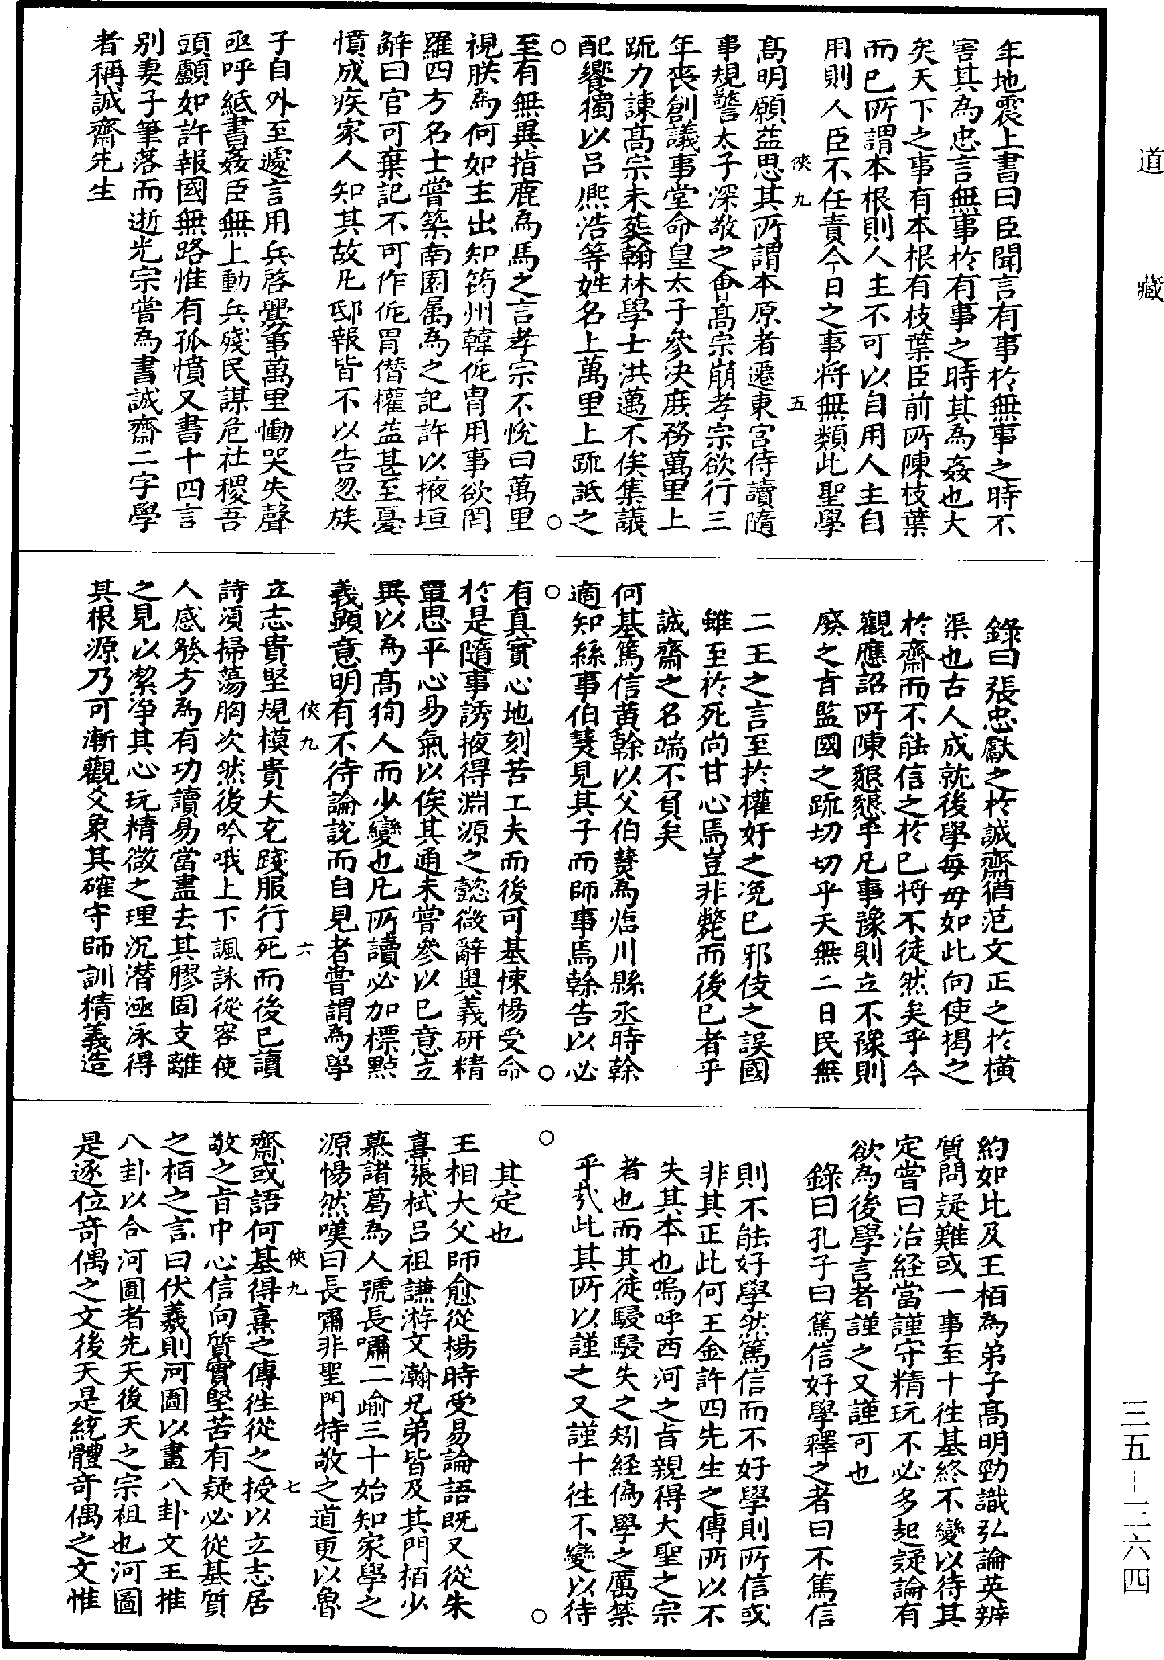 道藏
年地震上書曰臣聞言有事於無事之時不
害其為忠言無事於有事之時其為姦也大
矣天下之事有本根有枝葉臣前所陳枝葉
而已所謂本根則人主不可以自用人主自
用則人臣不任責今日之事將無類此聖學
俠九 五
高明願益思其所謂本原者遷東宮侍讀隨
事規警太子深敬之會高宗崩孝宗欲行三
年喪創議事堂命皇太子參決庶務萬里上
疏力諫高宗未葬翰林學士洪邁不俟集議
配饗獨以呂熈浩等姓名上萬里上疏詆之
至有無異指鹿為馬之言孝宗不悅曰萬里
視朕為何如主出知筠州韓侂胄用事欲罔
羅四方名士嘗築南園屬為之記許以掖垣
辭曰官可棄記不可作侂胄僭權益甚至憂
憤成疾家人知其故凡邸報皆不以告忽族
子自外至遽言用兵啓釁事萬里慟哭失聲
亟呼紙書姦臣無上動兵殘民謀危社稷吾
頭顱如許報國無路惟有孤憤又書十四言
別妻子筆落而逝光宗嘗為書誠齋二字學
者稱誠齋先生
錄曰張忠獻之於誠齋猶范文正之於橫
渠也古人成就後學每毋如此向使揭之
於齋而不能信之於已將不徒然矣乎今
觀應詔所陳懇懇乎凡事豫則立不豫則
廢之旨監國之疏切切乎天無二日民無
二王之言至於權奸之凂已邪伎之誤國
雖至於死尚甘心焉豈非斃而後已者乎
誠齋之名端不負矣
何基篤信黃榦以父伯慧為臨川縣丞時榦
適知縣事伯慧見其子而師事焉榦告以必
有真實心地刻苦工夫而後可基悚惕受命
於是隨事誘掖得淵源之懿微辭奧義研精
覃思平心易氣以俟其通未嘗參以已意立
異以為高徇人而少變也凡所讀必加標點
義顯意明有不待論說而自見者嘗謂為學
俠九 六
立志貴堅規模貴大充踐服行死而後已讀
詩須掃蕩胸次然後吟哦上下諷詠從容使
人感發方為有功讀易當盡去其膠固支離
之見以潔淨其心玩精微之理沉潛涵泳得
其根源乃可漸觀爻象其確守師訓精義造
約如此及王栢為弟子高明勁識弘論英辨
質問疑難或一事至十往基終不變以待其
定嘗曰治經當謹守精玩不必多起疑論有
欲為後學言者謹之又謹可也
錄曰孔子曰篤信好學釋之者曰不篤信
則不能好學然篤信而不好學則所信或
非其正此何王金許四先生之傳所以不
失其本也嗚呼西河之旨親得大聖之宗
者也而其徒駸駸失之矧經偽學之厲禁
乎哉此其所以謹之又謹十往不變以待
其定也
王相大父師愈從楊時受易論語既又從朱
熹張栻呂祖謙游文瀚兄弟皆及其門栢少
慕諸葛為人號長嘯二踰三十始知家學之
源惕然嘆曰長嘯非聖門特敬之道更以魯
俠九 七
齋或語何基得熹之傳往從之授以立志居
敬之旨中心信向質實堅苦有疑必從基質
之栢之言曰伏羲則河圖以畫八卦文王推
八卦以合河圖者先天後天之宗祖也河圖
是逐位奇偶之文後天是統體奇偶之文惟
三五—二六四